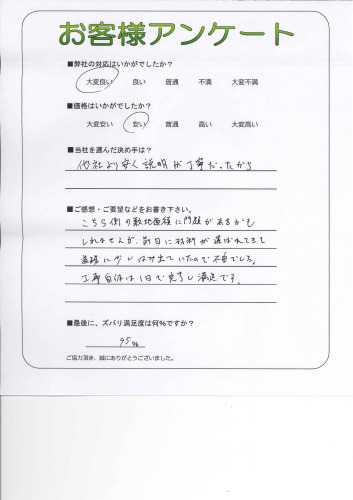 お客様アンケート
■弊社の対応はいかがでしたか？
大変良い 良い 普通 不満 大変不満
■価格はいかがでしたか？
大変安い 安い 普通 高い 大変高い
■当社を選んだ決め手は？
他社より安く説明が丁寧だったから
■ご感想・ご要望などをお書き下さい。
こちら側の敷地面積に問題があるかも
しれませんが、前日に材料が運ばれてきて
道路に少しはみ出ていたので不安でした。
工事自体は1日で完了し満足です。
■最後に、ズバリ満足度は何%ですか？
95%
ご協力頂き、誠にありがとうございました。